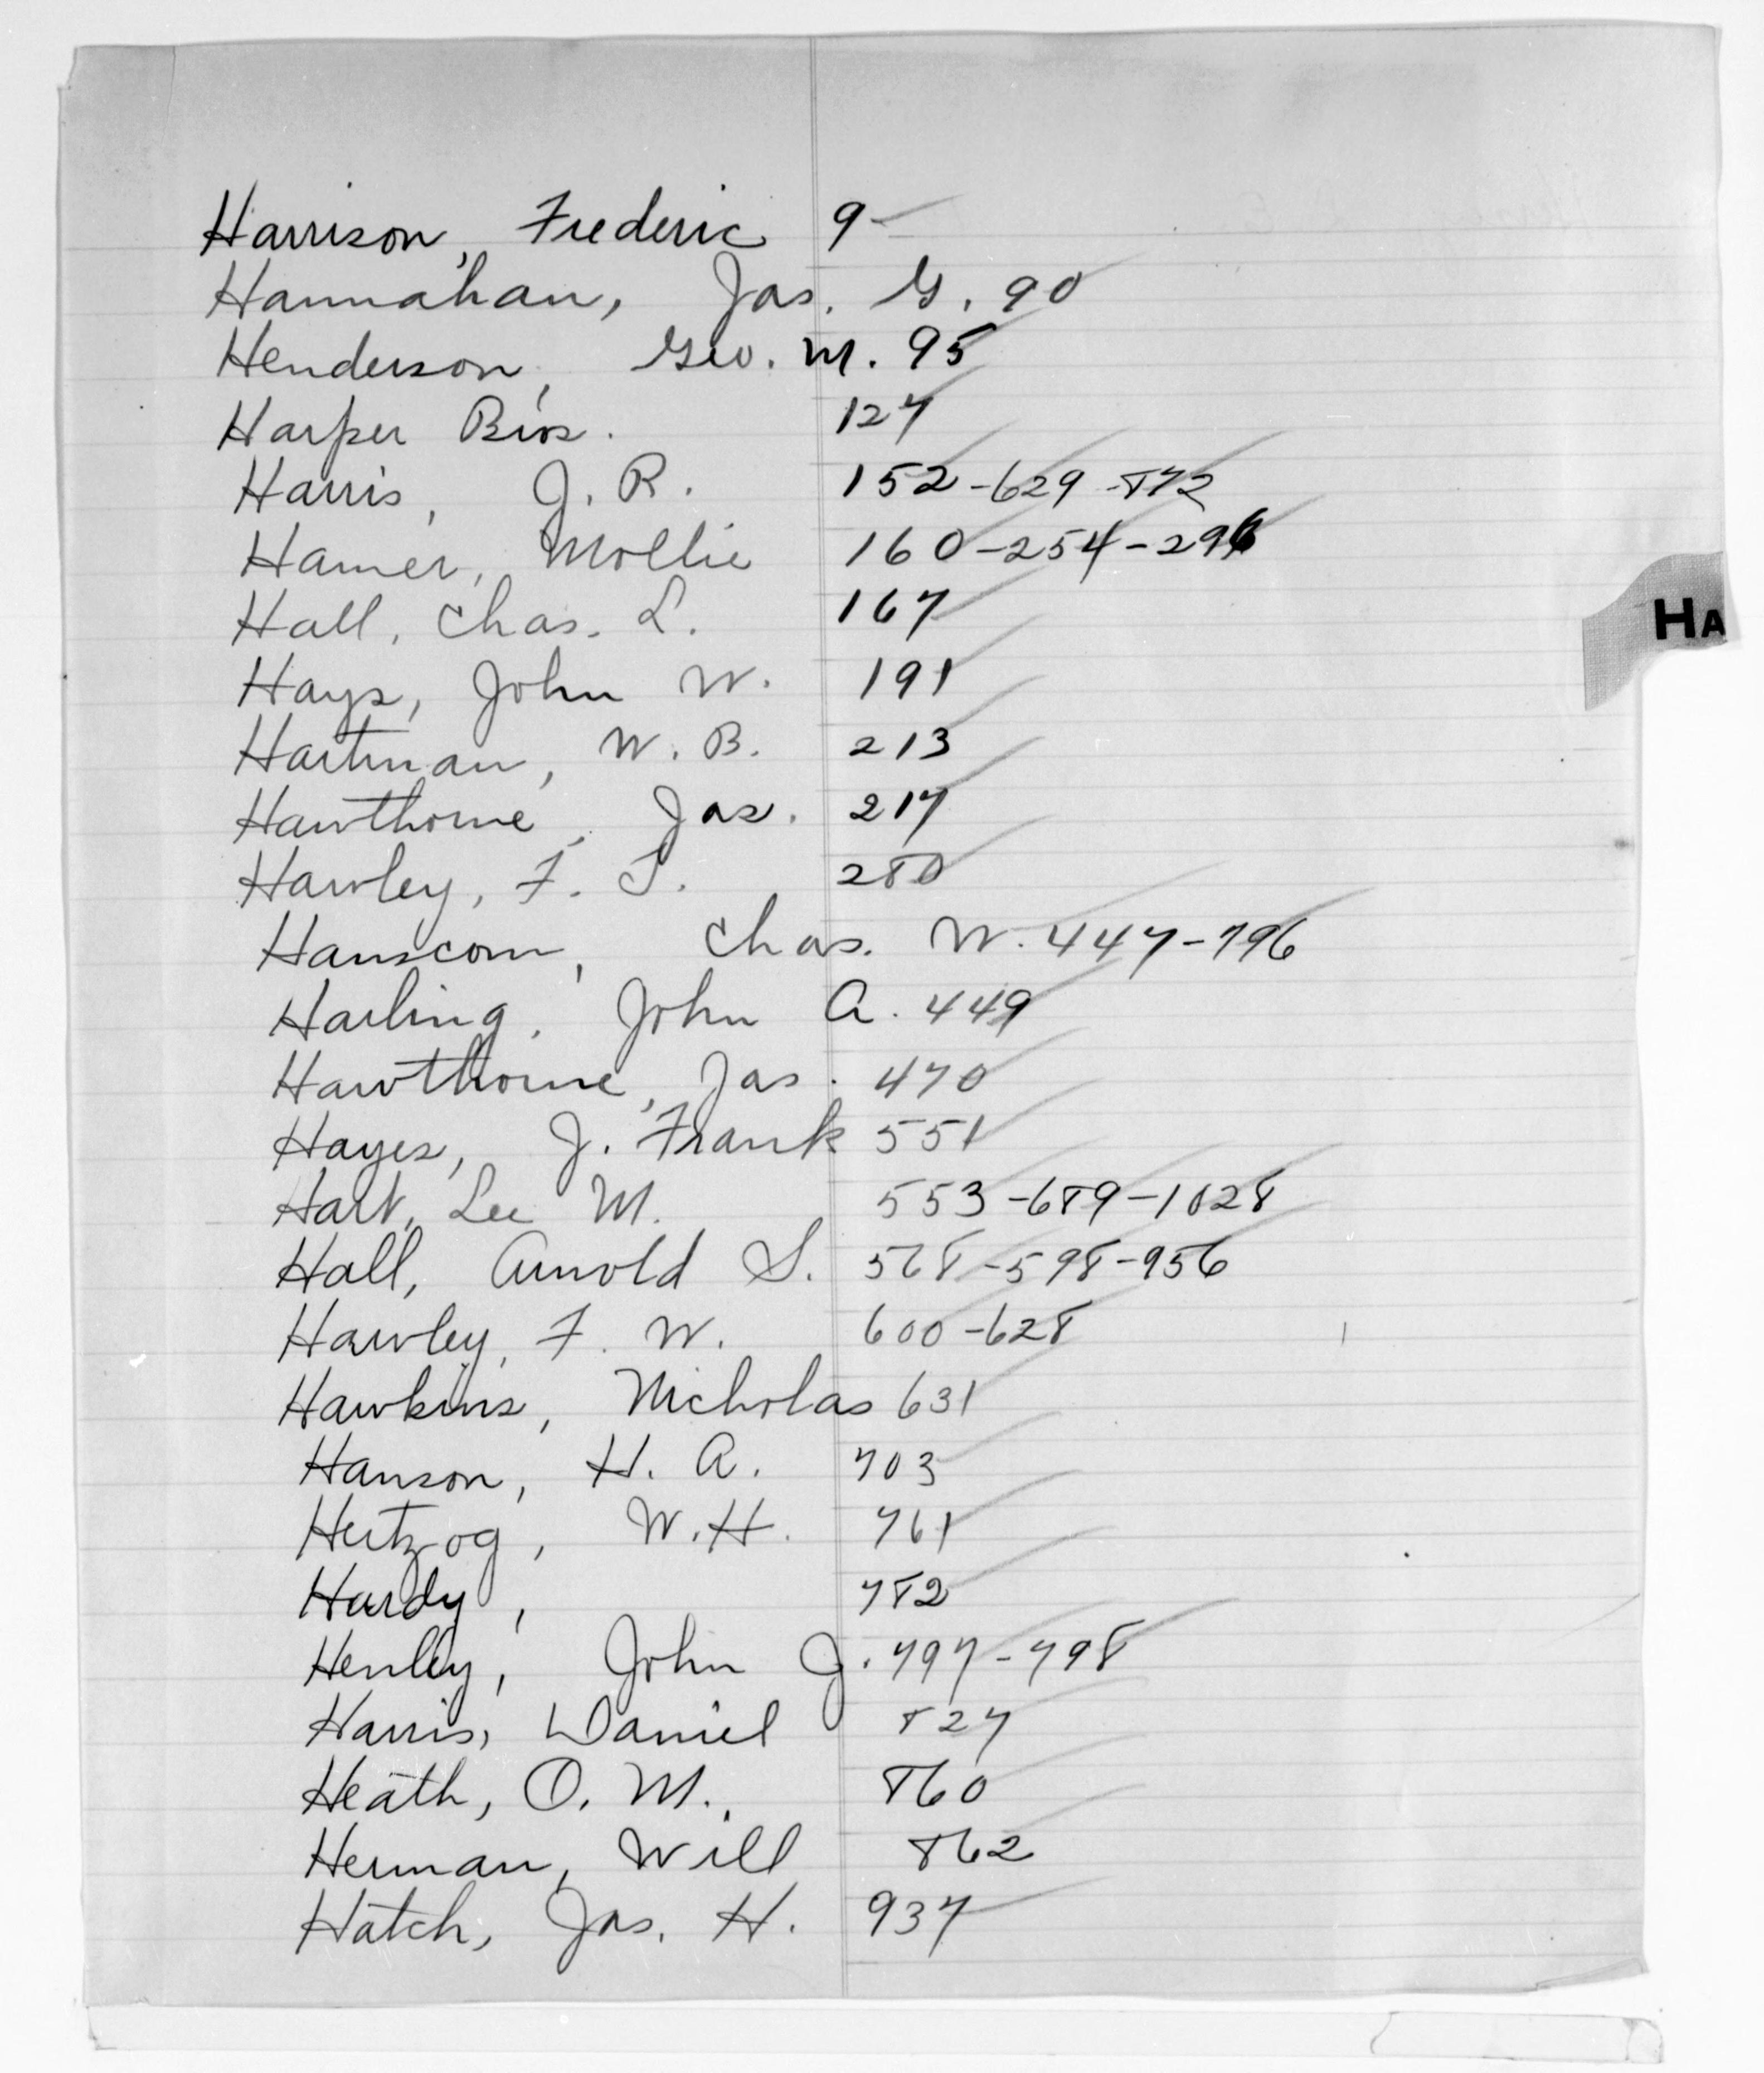 Harrison, Frederic 9
Hannahan, Jas. G. 90
Henderson, Geo. M. 95
Harper Bros. 127
Harris, J. R. 152-629-872
Hamer, Mollie 160-254-296
Hall, Chas. L. 167
HA
Hays, John W. 191
Hartman, W. B. 213
Hawthorne, Jas. 217
Hawley, F. T. 280
Hanscom, Chas. W. 447-796
Harling, John A. 449
Hawthorne, Jas. 470
Hayes, J. Frank 551
Hart, Lee M. 553-689-1028
Hall, Arnold S. 568-598-956
Hawley, F. W. 600-628
Hawkins, Nicholas 631
Hanson, H. A. 703
Hertzog, W. H. 761
Hardy, 782
Henley, John J. 797-798
Harris, Daniel 827
Heath, O. M. 860
Herman, Will 862
Hatch, Jas. H. 937